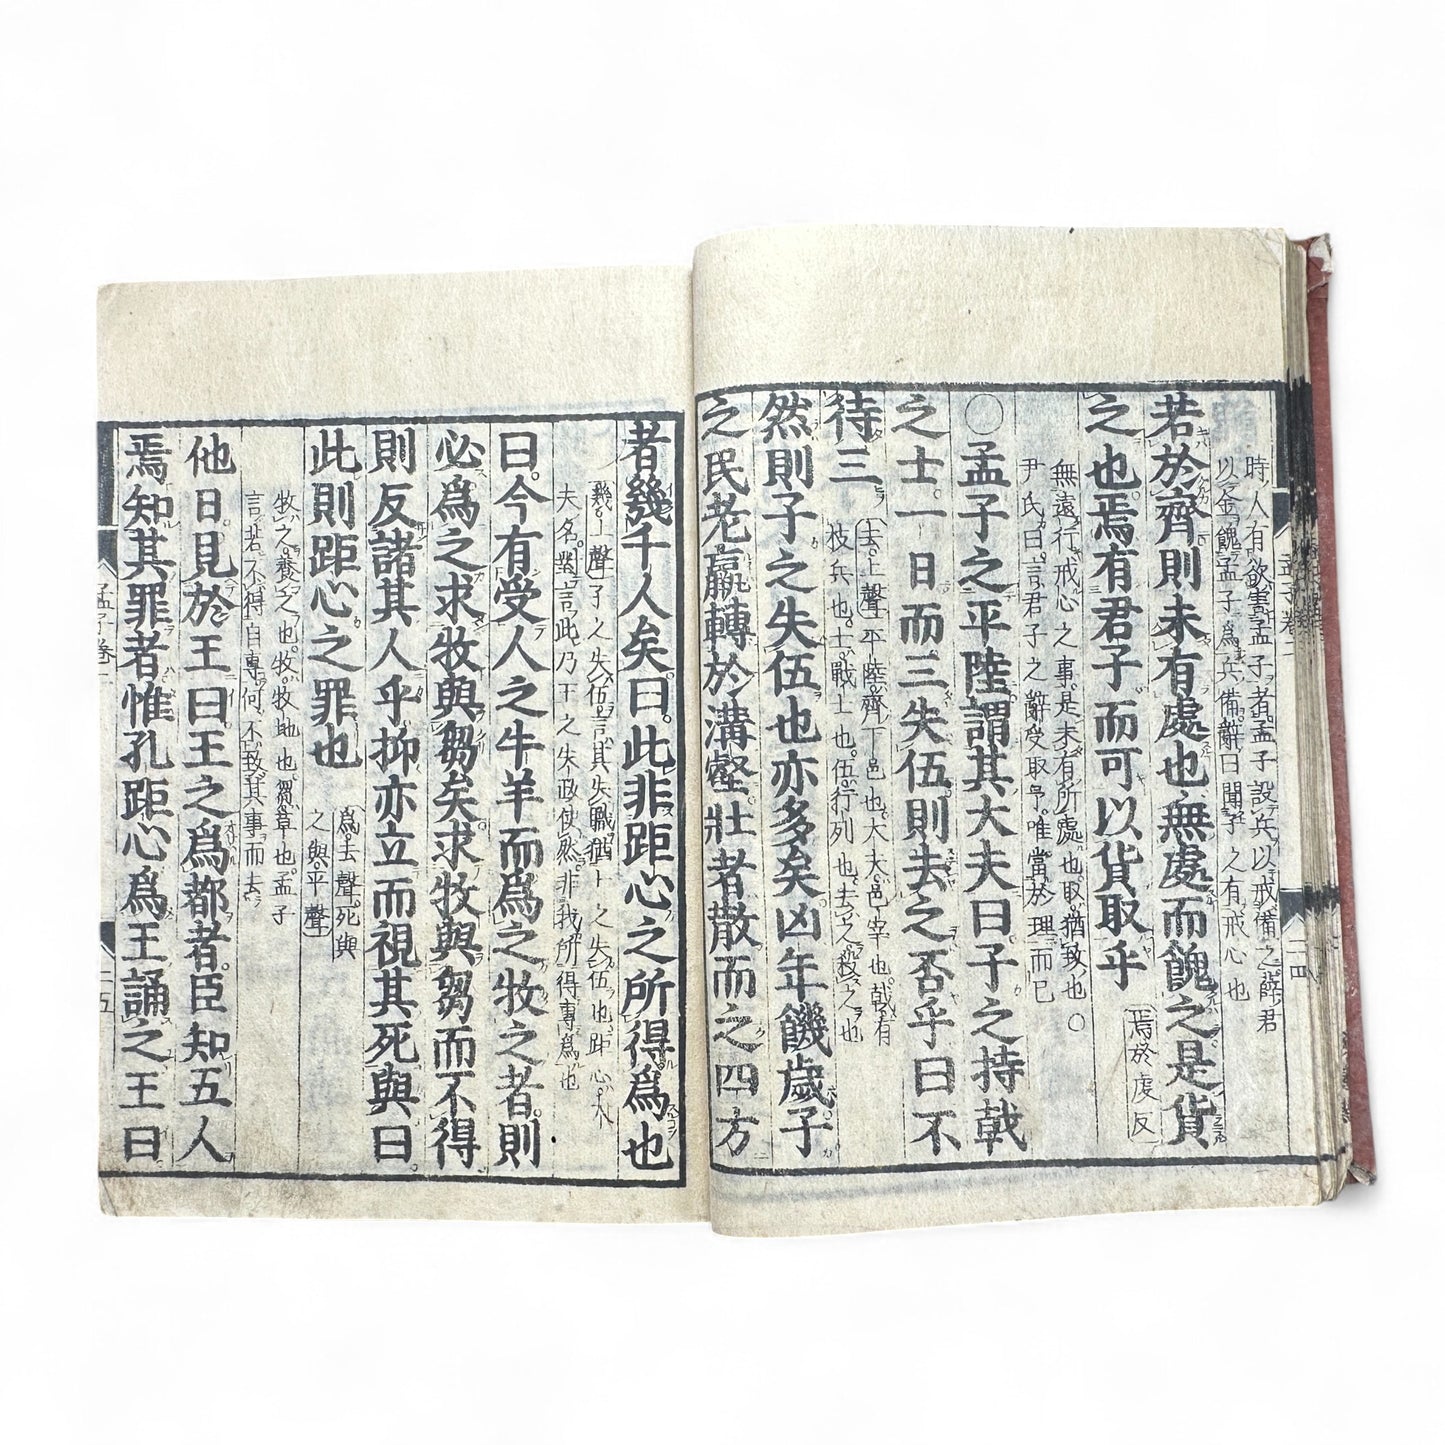 時人有欲害孟子者孟子設兵以戒備之薛君
以金餽孟子為兵備辭曰聞子之有戒心也
若於齊則未有處也無處而餽之是貨
之也焉有君子而可以貨取乎
焉於虔反
無遠行戒心之事是未有所處也取猶致也○
尹氏曰言君子之辭受取予唯當於理而已
○孟子之平陸謂其大夫曰子之持戟
之士一日而三失伍則去之否乎曰不
待三
去上聲平陸齊下邑也大夫邑宰也戟有
枝兵也士戰士也伍行列也去之殺之也
然則子之失伍也亦多矣凶年饑歲子
之民老羸轉於溝壑壯者散而之四方
者幾千人矣曰此非距心之所得爲也
幾上聲子之失伍言其失職猶士之失伍也距心大
夫名對言此乃王之失政使然非我所得專爲也
曰今有受人之牛羊而爲之牧之者則
必爲之求牧與芻矣求牧與芻而不得
則反諸其人乎抑亦立而視其死與曰
此則距心之罪也
爲去聲死與
之與平聲
牧之養之也牧牧地也芻草也孟子
言若不得自專何不致其事而去
他日見於王曰王之爲都者臣知五人
焉知其罪者惟孔距心爲王誦之王曰
孟子卷二
二四
孟子卷二
二五